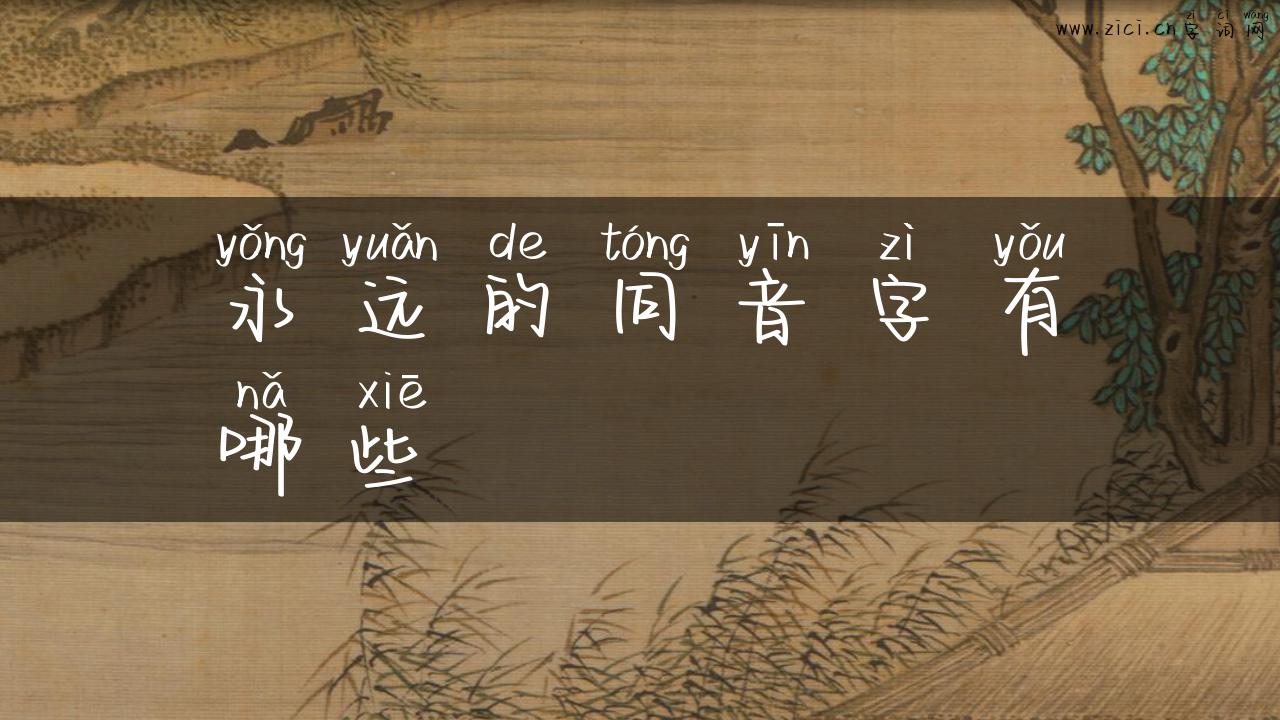 zì cí wǎng
www.zici.cn字词网
yǒng yuǎn de tóng yīn zì yǒu
永远的同音字有
nǎ xiē
哪些